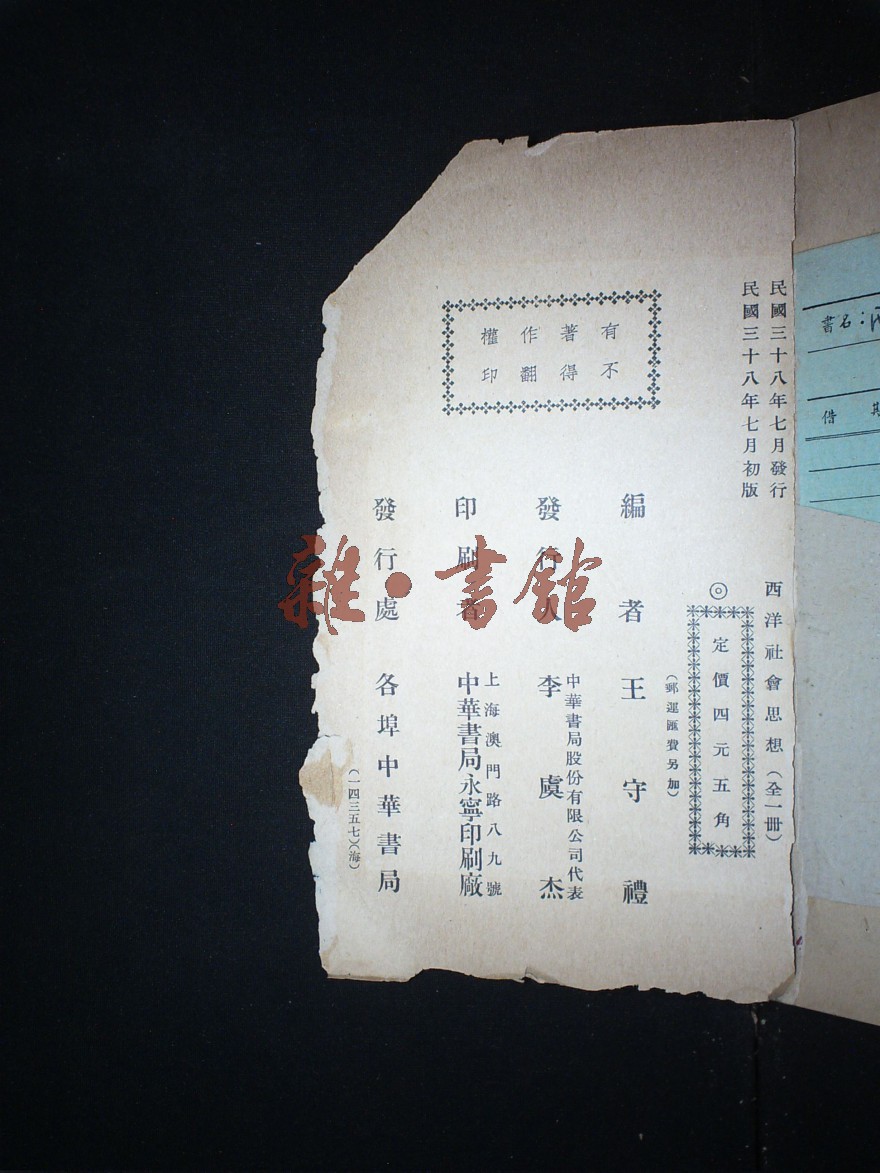 民國三十八年七月發行
民國三十八年七月初版
西洋社會思想（全一冊）
◎定價四元五角
（郵運匯費另加）
有不著得作翻權印
編者 王守禮
發行人 李虞杰
中華書局股份有限公司代表
印刷者 中華書局永寧印刷廠
上海澳門路八九號
發行處 各埠中華書局
（一四三五七）（海）
書名：
借
雜·書館